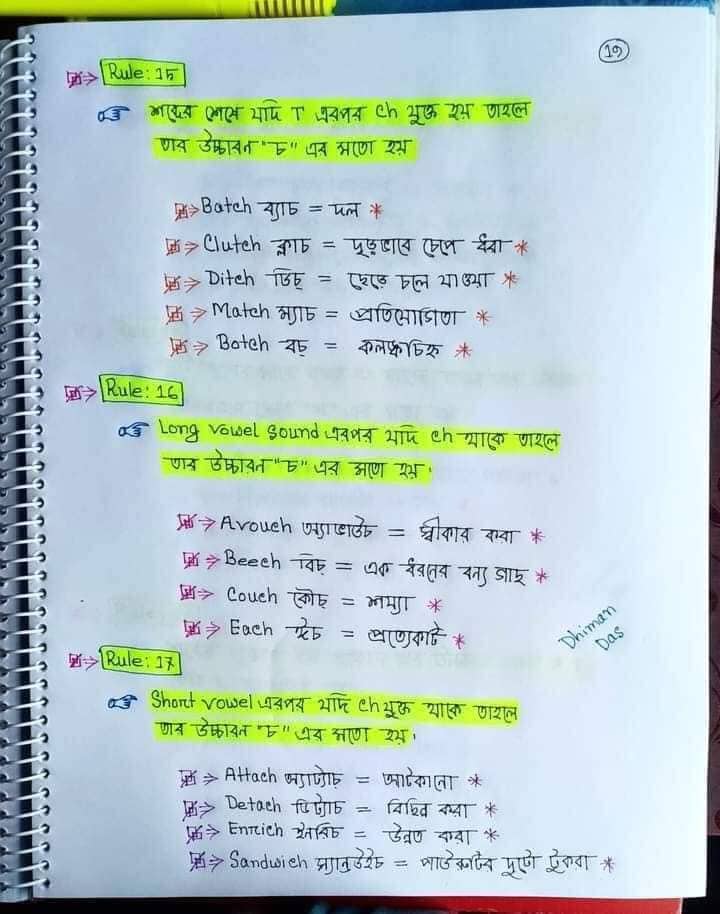 19
Rule: 15
শব্দের শেষে যদি T এরপর ch যুক্ত হয় তাহলে
তার উচ্চারন "চ" এর মতো হয়
Batch ব্যাচ = দল *
Clutch ক্লাচ = দৃঢ়ভাবে চেপে ধরা *
Ditch ডিচ্ = ছেড়ে চলে যাওয়া *
Match ম্যাচ = প্রতিযোগিতা *
Botch বচ্ = কলঙ্কচিহ্ন *
Rule: 16
Long vowel sound এরপর যদি ch থাকে তাহলে
তার উচ্চারন "চ" এর মতো হয়।
Avouch অ্যাভাউচ = স্বীকার করা *
Beech বিচ্ = এক ধরনের বন্য গাছ *
Couch কৌচ্ = শয্যা *
Each ঈচ = প্রত্যেকটি *
Dhiman
Das
Rule: 17
Short vowel এরপর যদি ch যুক্ত থাকে তাহলে
তার উচ্চারন "চ" এর মতো হয়।
Attach অ্যাট্যাচ = আটকানো *
Detach ডিট্যাচ = বিছিন্ন করা *
Enrich ইনরিচ = উন্নত করা *
Sandwich স্যান্ডউইচ = পাউরুটির দুটো টুকরা *